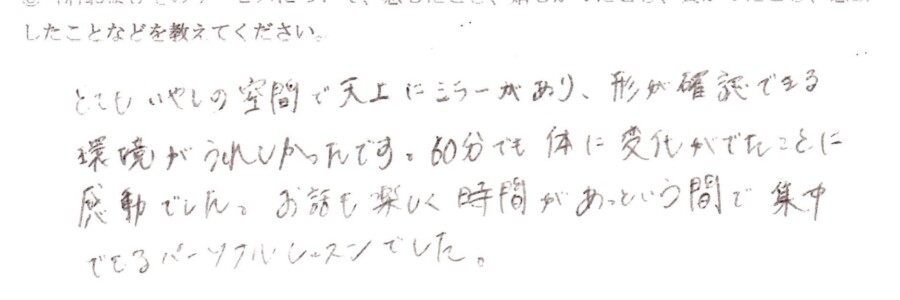 したことなどを教えてください。
とてもいやしの空間で天上にミラーがあり、形が確認できる
環境がうれしかったです。60分でも体に変化がでたことに
感動でした。お話も楽しく時間があっという間で集中
できるパーソナルレッスンでした。